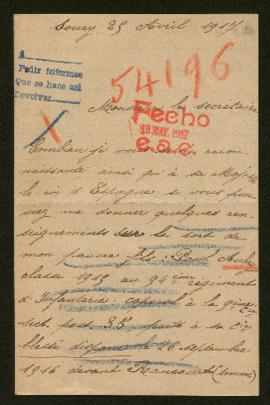 Soucy 25 Avril 1917
A
Pedir informes
que se hace así
Devolver
54196
Monsieur le secrétaire
Fecho
19 MAY. 1917
e.a.c.
X
Combien je vous serai recon-
naissante ainsi qu'à sa Majesté
le roi d'Espagne si vous pou-
viez me donner quelques ren-
seignements sur le sort de
mon pauvre fils
classe 1915 au 94ème régiment
d'Infanterie caporal à la 9ème Cie
sect. post. 35 à sa Cie
blessé disparu le 26 septembre
1916 devant Rancourt (Somme)